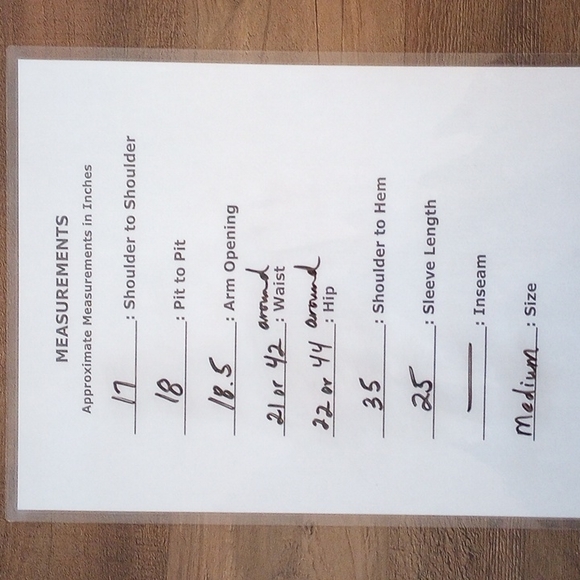 MEASUREMENTS
Approximate Measurements in Inches
17 : Shoulder to Shoulder
18 : Pit to Pit
18.5 : Arm Opening
21 or 42 around : Waist
22 or 44 around : Hip
35 : Shoulder to Hem
25 : Sleeve Length
— : Inseam
Medium : Size